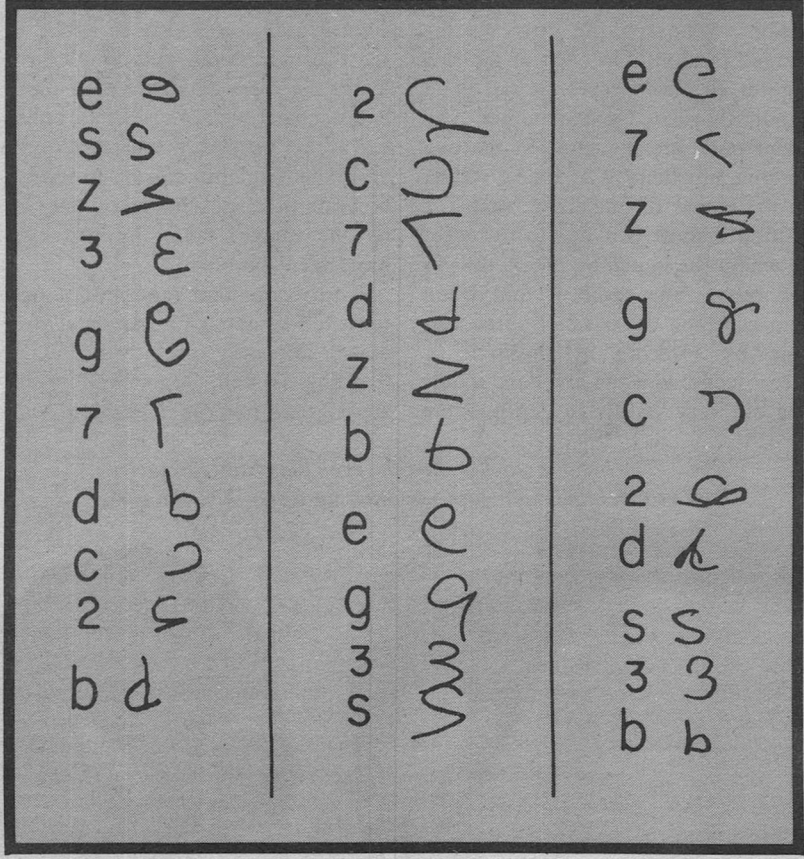 e
s s
z
3 Ɛ
g
7
d b
c ɔ
2
b d
2
c ɔ
7
d d
z z
b b
e e
g
3 3
s
e e
7
z
g
c ɔ
2
d
s s
3 3
b b